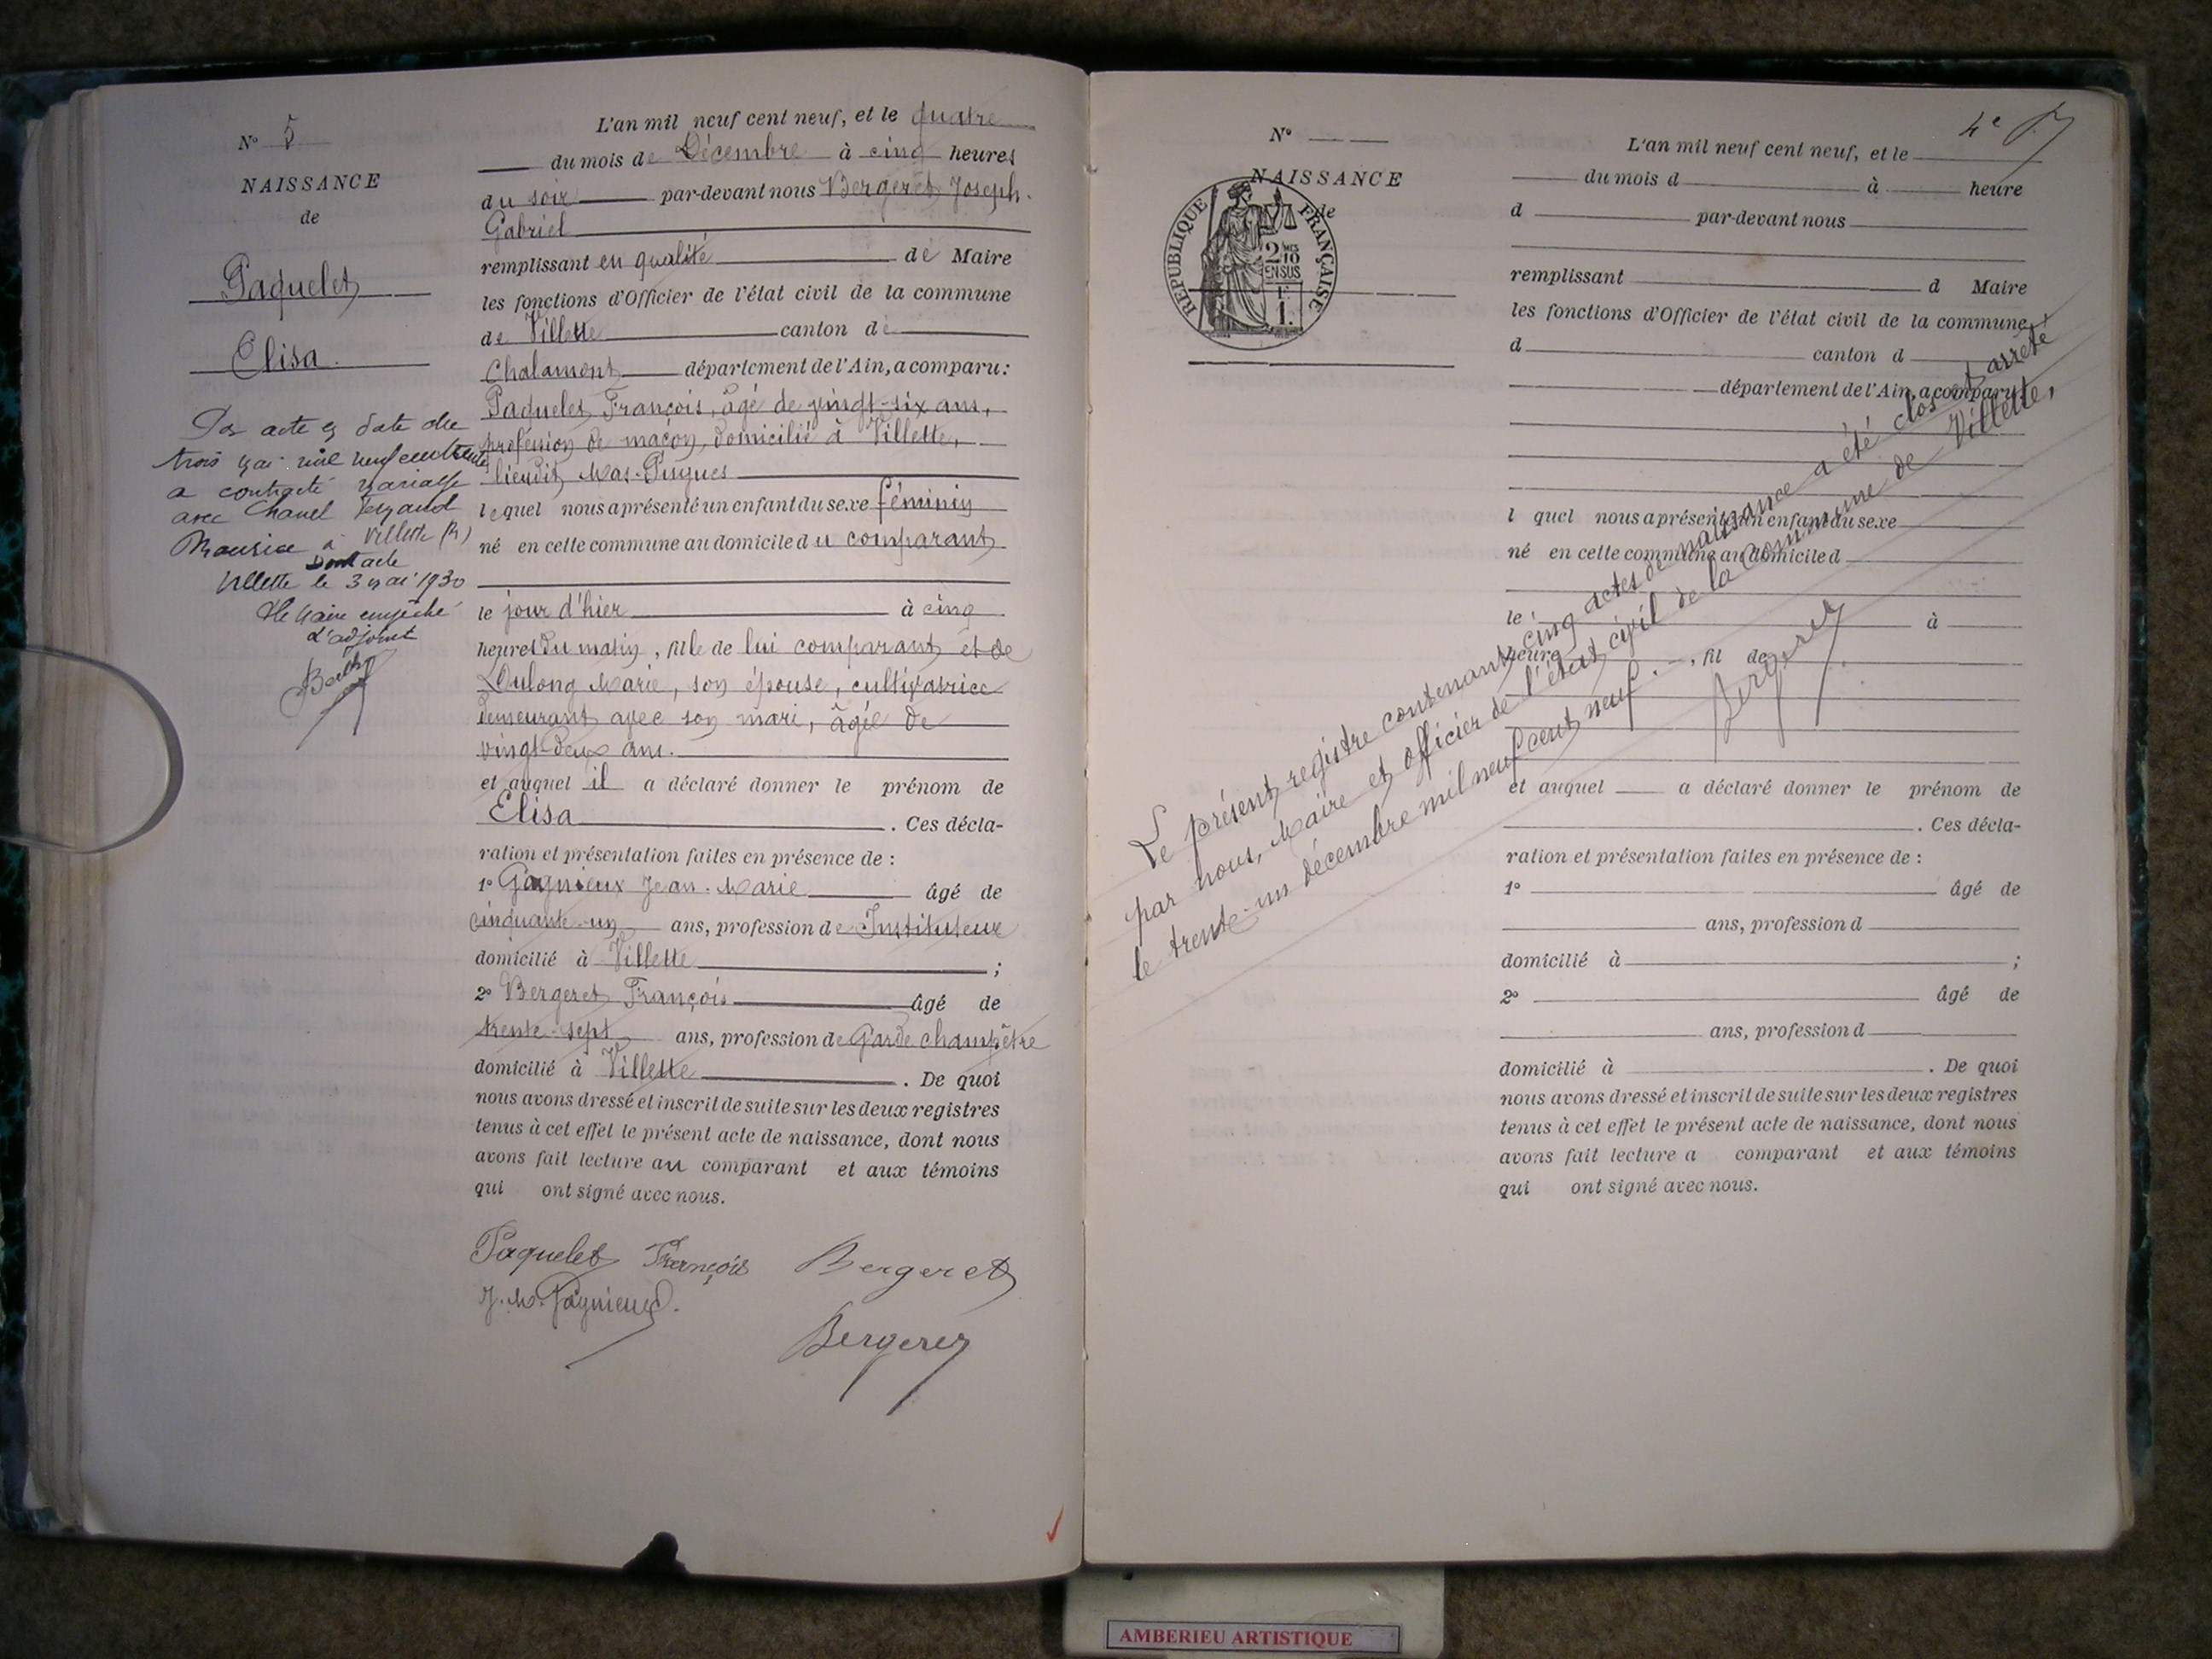 N° 5
NAISSANCE
de
Paquelet
Elisa.
Par acte en date du
trois mai mil neuf cent trente
a contracté mariage
avec Chanel Fernand
Maurice à Villette (R)
Dont acte
Villette le 3 mai 1930
Le Maire empêché
L'adjoint
L'an mil neuf cent neuf, et le quatre
du mois de Décembre à cinq heures
du soir par-devant nous Bergeret Joseph-
Gabriel
remplissant en qualité de Maire
les fonctions d'Officier de l'état civil de la commune
de Villette canton de
Chalamont département de l'Ain, a comparu:
Paquelet François, âgé de vingt-six ans,
profession de maçon, domicilié à Villette,
lieudit Mas-Pugues
lequel nous a présenté un enfant du sexe féminin
né en cette commune au domicile du comparant
le jour d'hier à cinq
heures du matin, fille de lui comparant et de
Dulong Marie, son épouse, cultivatrice
demeurant avec son mari, âgée de
vingt-deux ans.
et auquel il a déclaré donner le prénom de
Elisa. Ces décla-
ration et présentation faites en présence de :
1° Gagnieux Jean-Marie âgé de
cinquante-un ans, profession de Instituteur
domicilié à Villette ;
2° Bergeret François âgé de
trente-sept ans, profession de Garde champêtre
domicilié à Villette. De quoi
nous avons dressé et inscrit de suite sur les deux registres
tenus à cet effet le présent acte de naissance, dont nous
avons fait lecture au comparant et aux témoins
qui ont signé avec nous.
Paquelet François Bergeret
J. M. Gagnieux.
Bergeret
4e
N°
NAISSANCE
de
REPUBLIQUE FRANÇAISE
2 10
EN SUS
1.
L'an mil neuf cent neuf, et le
du mois d à heure
d par-devant nous
remplissant d Maire
les fonctions d'Officier de l'état civil de la commune
d canton d
département de l'Ain, a comparu:
l quel nous a présenté un enfant du sexe
né en cette commune au domicile d
le à
heure , fil de
et auquel a déclaré donner le prénom de
. Ces décla-
ration et présentation faites en présence de :
1° âgé de
ans, profession d
domicilié à ;
2° âgé de
ans, profession d
domicilié à . De quoi
nous avons dressé et inscrit de suite sur les deux registres
tenus à cet effet le présent acte de naissance, dont nous
avons fait lecture a comparant et aux témoins
qui ont signé avec nous.
Le présent registre contenant cinq actes de naissance a été clos et arrêté
par nous, Maire et officier de l'état civil de la commune de Villette,
le trente-un décembre mil neuf cent neuf.
Bergeret
AMBERIEU ARTISTIQUE